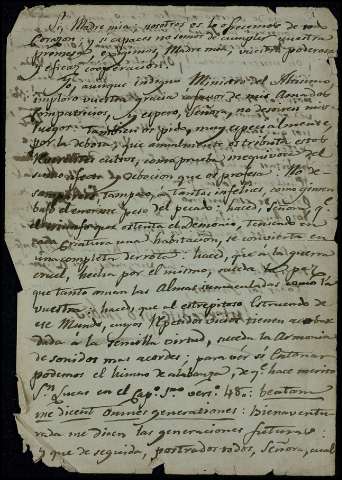 Sí, Madre mia, nosotros os lo ofrecemos de todo
Corazon: y si capaces no somos de cumplir nuestra
promesa, exigimos, Madre mia, vuestra poderosa
y eficaz cooperacion.
Yo, aunque indigno Ministro del Altisimo
imploro vuestra gracia a favor de mis Amados
Compatricios, y espero, Señora, no desoireis mis
ruegos. Tambien os pido, muy especialmente,
por la debora, que anualmente os tributa estos
cultos, como prueba inequivoca del
afecto y debocion que os profesa. No de
tampoco, a tantos infelices como gimen
bajo el enorme peso del pecado: haced, Señora, qe
el triunfo que ostenta el Demonio, teniendo en
cada Criatura una habitacion, se convierta en
una completa derrota: haced, que a la guerra
cruel, hecha por el mismo, suceda la paz
que tanto aman las Almas como la
vuestra: haced que al estrepitoso Estruendo de
ese Mundo, cuyos tienen
dida a la sencilla virtud, suceda la Armonia
de sonidos mas acordes; para ver si Entonar
podemos el himno de alabanza, de qe hace merito
Sn Lucas en el Capo 1mo verso 48: beatam
me dicent omnes generationes: Bienaventu
rada me dicen las generaciones futuras:
y que de seguida, postrados todos, Señora, cual